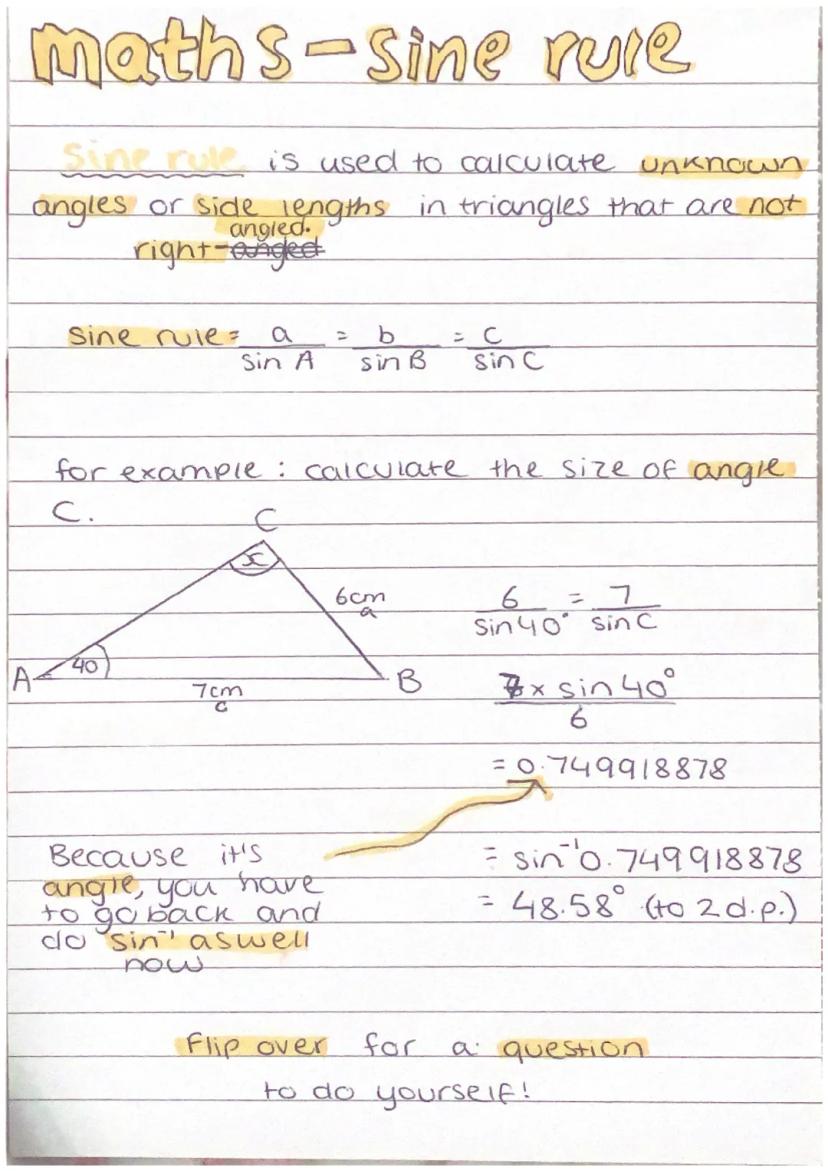 maths - sine rule
Sine rule is used to calculate unknown
angles or side lengths in triangles that are not
angled.
right-angled
sine rule = a/sin A = b/sin B = c/sin C
for example : calculate the size of angle
C.
C
x
6cm
a
6/sin40° = 7/sinC
A 40 B
7cm
c
7 x sin 40°
6
= 0.749918878
Because it's
angle, you have
to go back and
do sin⁻¹ aswell
now
= sin⁻¹0.749918878
= 48.58° (to 2 d.p.)
Flip over for a question
to do yourself!